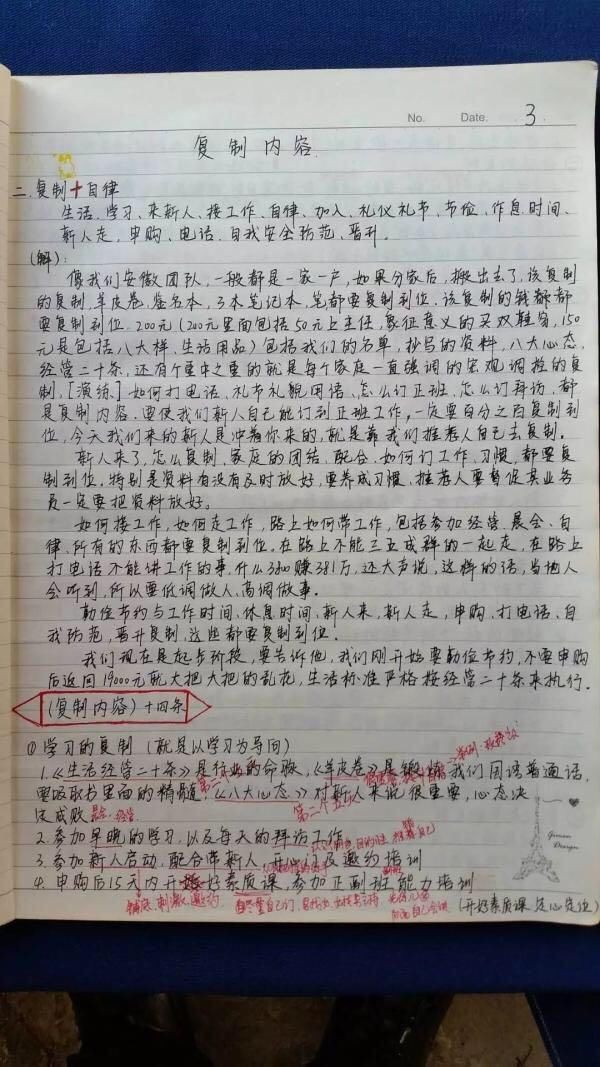 No. Date. 3
复制内容
二.复制十自律
生活、学习、来新人、接工作、自律、加入、礼仪礼节、节俭、作息时间、
新人走,申购、电话、自我安全防范、晋升.
(解):
像我们安徽团队,一般都是一家一户,如果分家后,搬出去了,该复制
的复制,羊皮卷,签名本,3本笔记本,笔都要复制到位.该复制的钱都都
要复制到位.200元(200元里面包括50元上主任,象征意义的买双鞋穿,150
元是包括八大样、生活用品)包括我们的名单,抄写的资料,八大心态,
经营二十条,还有个重中之重的就是每个家庭一直强调的宏观调控的复
制,[演练]如何打电话、礼节礼貌用语、怎么订正班、怎么订拜访、都
是复制内容.要使我们新人自己能订到正班工作,一定要百分之百复制到
位,今天我们来的新人是冲着你来的,就是靠我们推荐人自己去复制。
新人来了,怎么复制、家庭的团结、配合、如何订工作、习惯、都要复
制到位。特别是资料有没有及时放好,要养成习惯、推荐人要督促其业务
员一定要把资料放好。
如何接工作,如何走工作,路上如何带工作,包括参加经营、晨会、自
律、所有的东西都要复制到位.在路上不能三五成群的一起走,在路上
打电话不能讲工作的事,什么3800赚381万,还大声说,这样的话,当地人
会听到,所以要低调做人、高调做事。
勤俭节约与工作时间、休息时间、新人来,新人走,申购、打电话、自
我防范,晋升复制,这些都要复制到位!
我们现在是起步阶段,要告诉他,我们刚开始要勤俭节约,不要申购
后返回19000元就大把大把的乱花,生活标准严格按经营二十条来执行.
(复制内容)十四条
① 学习的复制 (就是以学习为导向)
1.《生活经营二十条》是行业的命脉,《羊皮卷》是锻炼我们国语普通话,
要吸取书里面的精髓.《八大心态》对新人来说很重要,心态决
定成败
2.参加早晚的学习,以及每天的拜访工作
3.参加新人启动,配合带新人,开心门及邀约培训
4.申购后15天内开好素质课,参加正副班能力培训
(开好素质课 定心定位)
Design